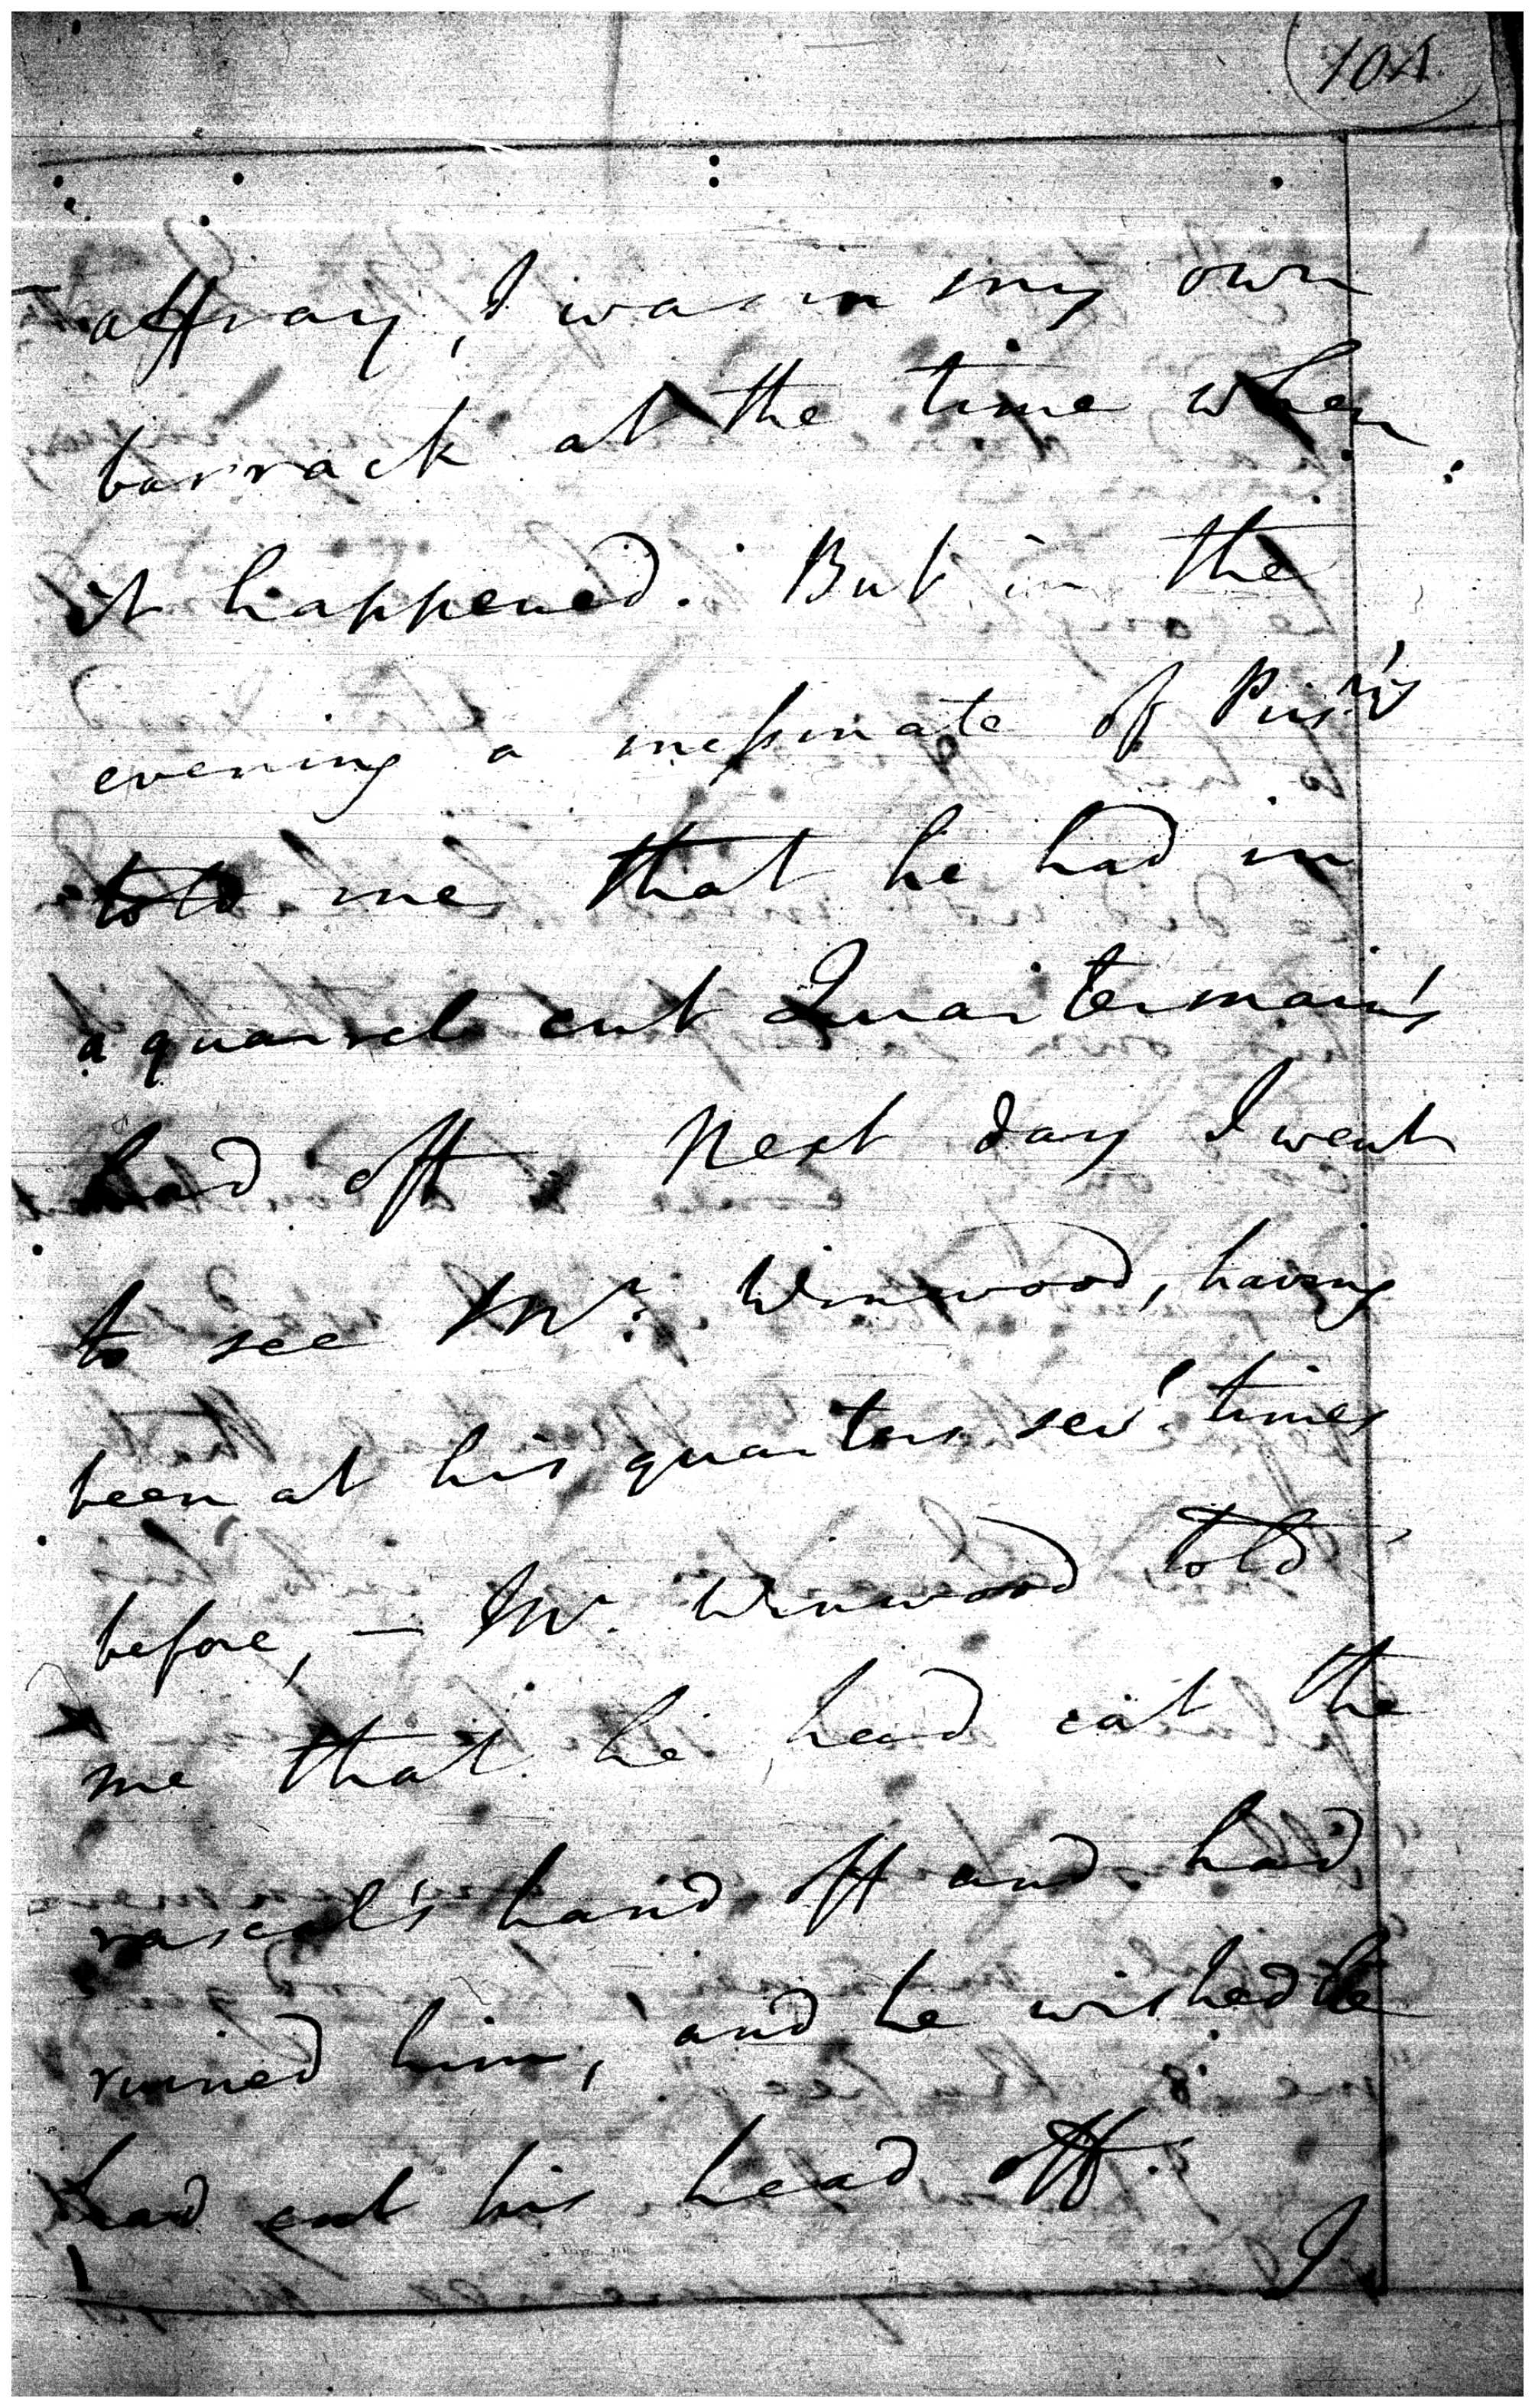 104
affray, I was in my own
barrack at the time when
it happened. But in the
evening a messmate of Pris.r's
told me that he had in
a quarrel cut Quartermain's
hand off. Next day I went
to see Mr. Winwood, having
been at his quarters sev.l times
before, — Mr. Winwood told
me that he had cut the
rascal's hand off and had
ruined him, and he wished he
had cut his head off.
I